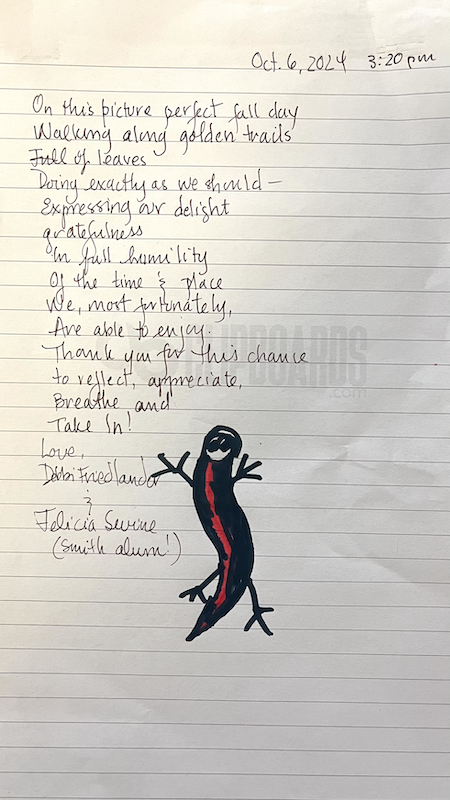 Oct. 6, 2024 3:20 pm
On this picture perfect fall day
Walking along golden trails
Full of leaves
Doing exactly as we should —
Expressing our delight
gratefulness
In full humility
Of the time & place
We, most fortunately,
Are able to enjoy.
Thank you for this chance
to reflect, appreciate,
Breathe and
Take In!
Love,
Debbi Friedlander
&
Felicia
(Smith alum!)